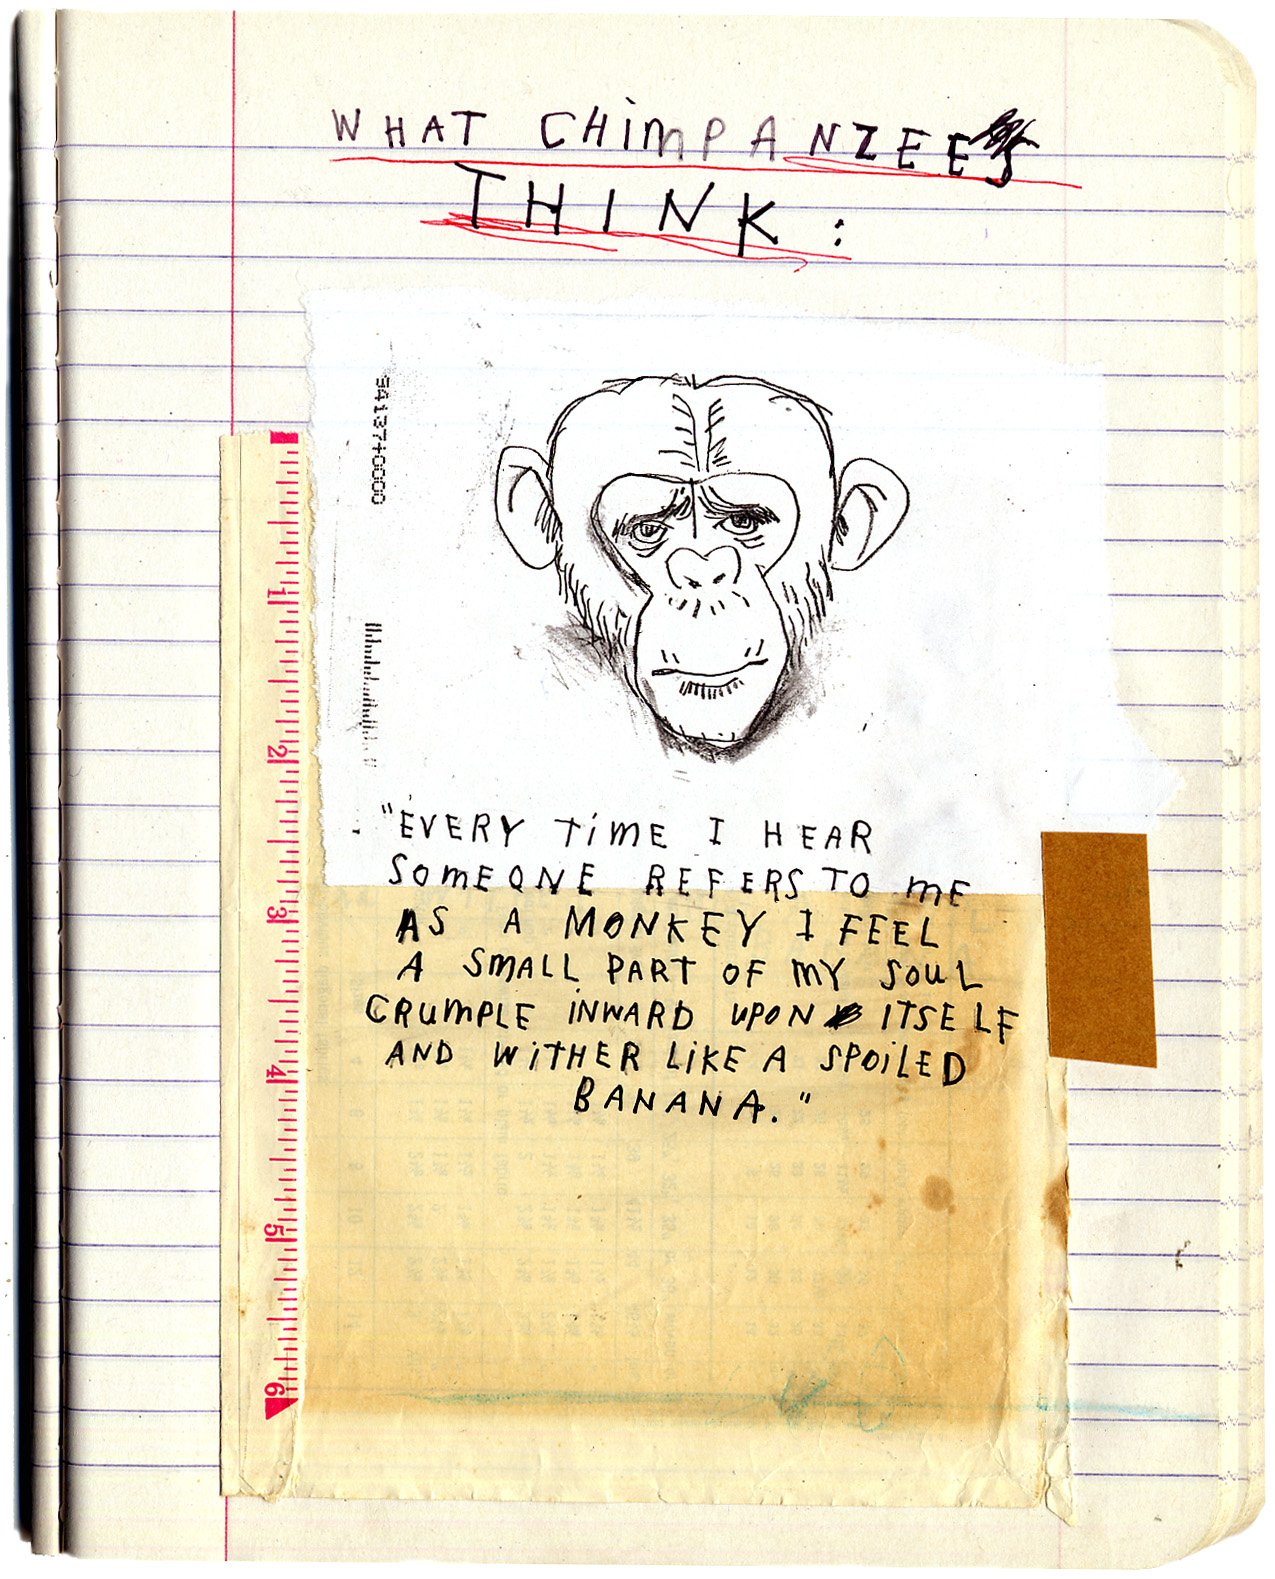 WHAT CHIMPANZEES
THINK:
94137+0000
1
2
3
4
5
6
"EVERY TIME I HEAR
SOMEONE REFERS TO ME
AS A MONKEY I FEEL
A SMALL PART OF MY SOUL
CRUMPLE INWARD UPON ITSELF
AND WITHER LIKE A SPOILED
BANANA."